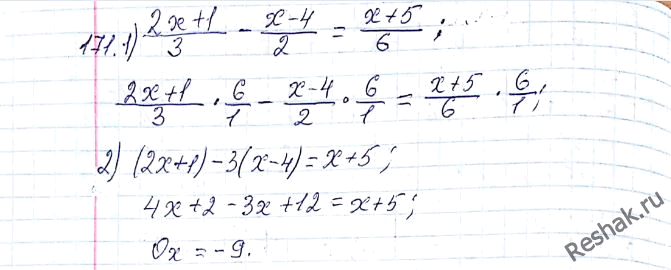 171.1) (2x+1)/3 - (x-4)/2 = (x+5)/6 ;
(2x+1)/3 · 6/1 - (x-4)/2 · 6/1 = (x+5)/6 · 6/1 ;
2) (2x+1)-3(x-4)=x+5;
4x+2-3x+12=x+5;
0x=-9.
Reshak.ru